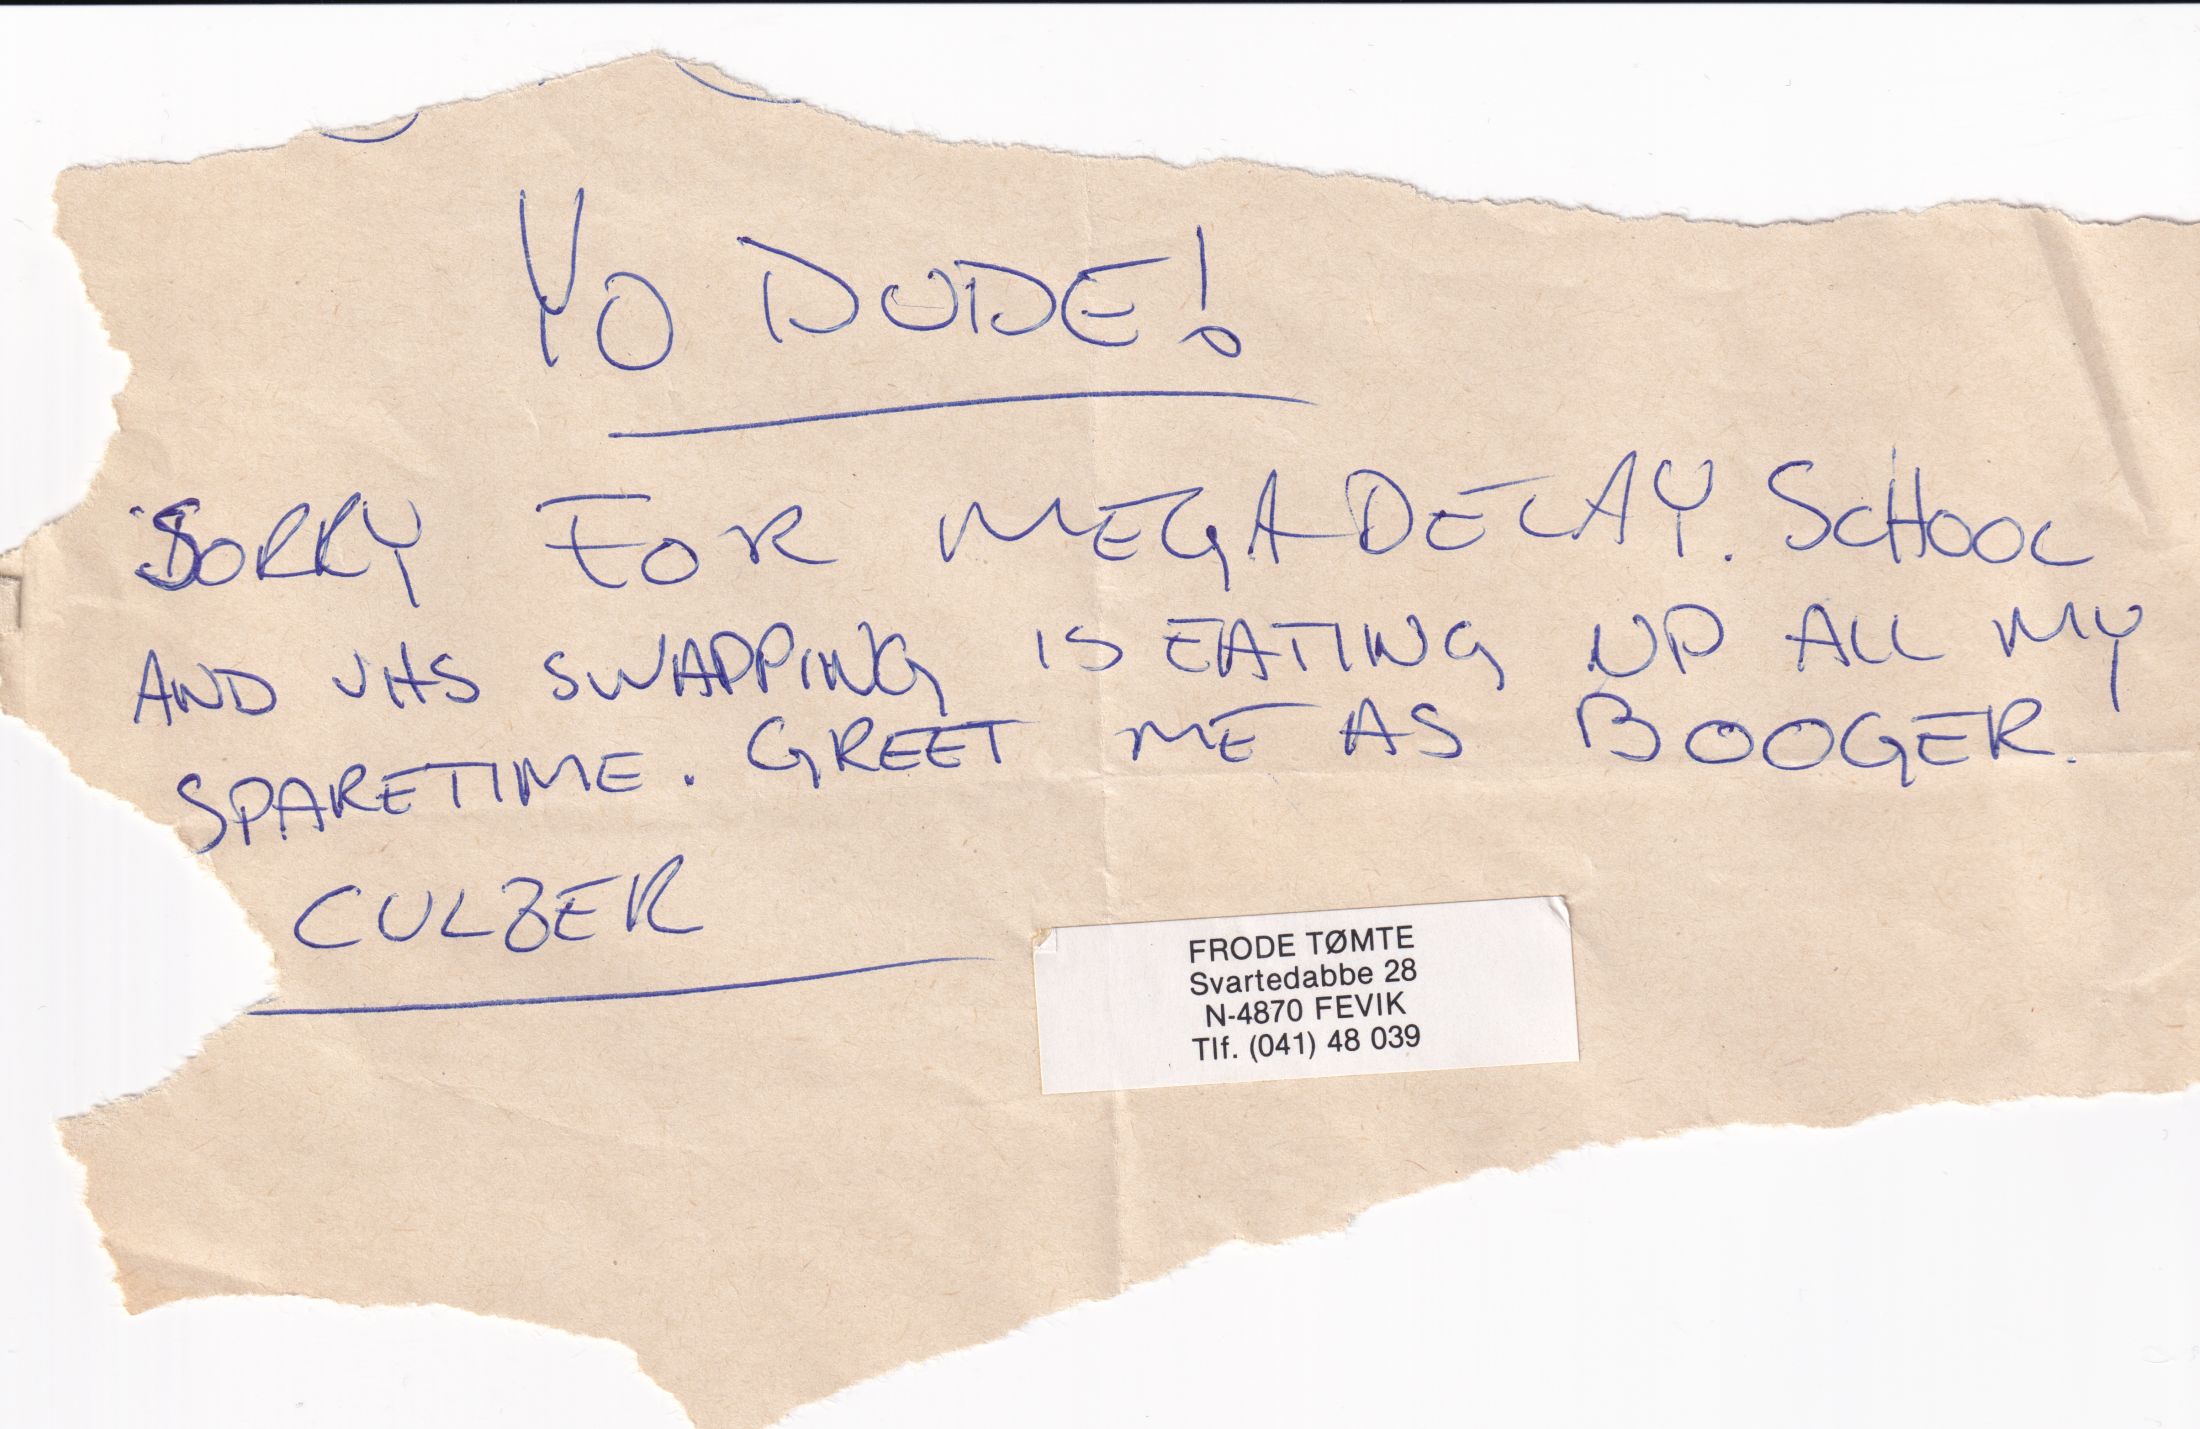 YO DUDE!
SORRY FOR MEGADELAY. SCHOOL
AND VHS SWAPPING IS EATING UP ALL MY
SPARETIME. GREET ME AS BOOGER.
CULZER
FRODE TØMTE
Svartedabbe 28
N-4870 FEVIK
Tlf. (041) 48 039